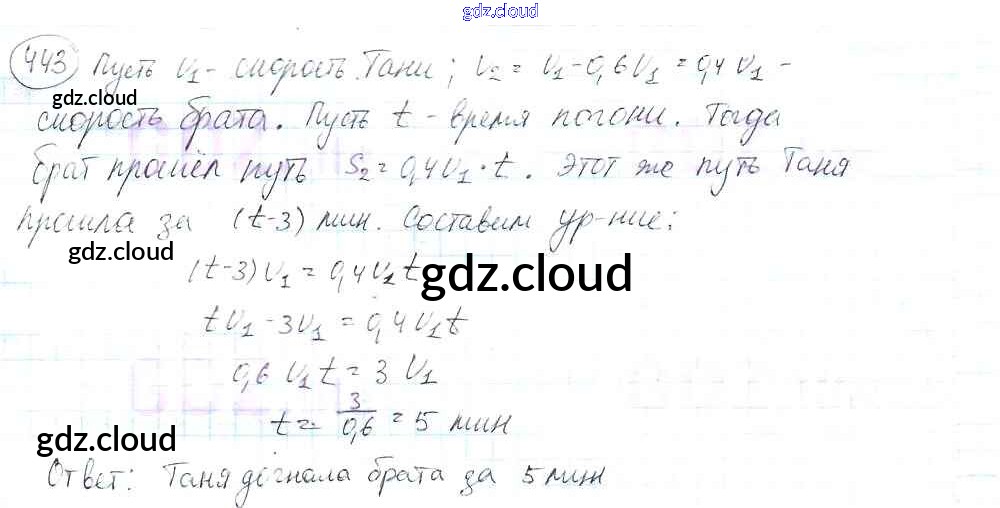 gdz.cloud
443 Пусть v₁ - скорость Тани; v₂ = v₁ - 0,6v₁ = 0,4v₁ -
gdz.cloud
скорость брата. Пусть t - время погони. Тогда
брат прошёл путь S₂ = 0,4v₁ · t. Этот же путь Таня
прошла за (t-3) мин. Составим ур-ние:
gdz.cloud
(t-3)v₁ = 0,4v₁t
gdz.cloud
tv₁ - 3v₁ = 0,4v₁t
0,6 v₁t = 3 v₁
t = 3/0,6 = 5 мин
gdz.cloud
Ответ: Таня догнала брата за 5 мин